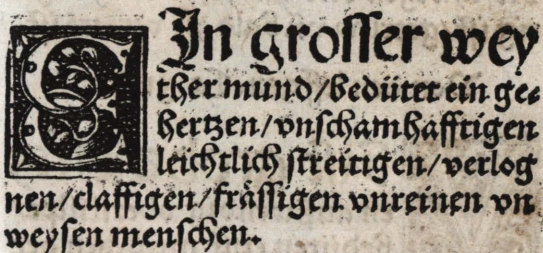 EIn grosser wey
ther mund/bedütet ein ge⸗
hertzen/vnschamhafftigen
leichtlich streitigen/verlog
nen/claffigen/frässigen vnreinen vn
weysen menschen.